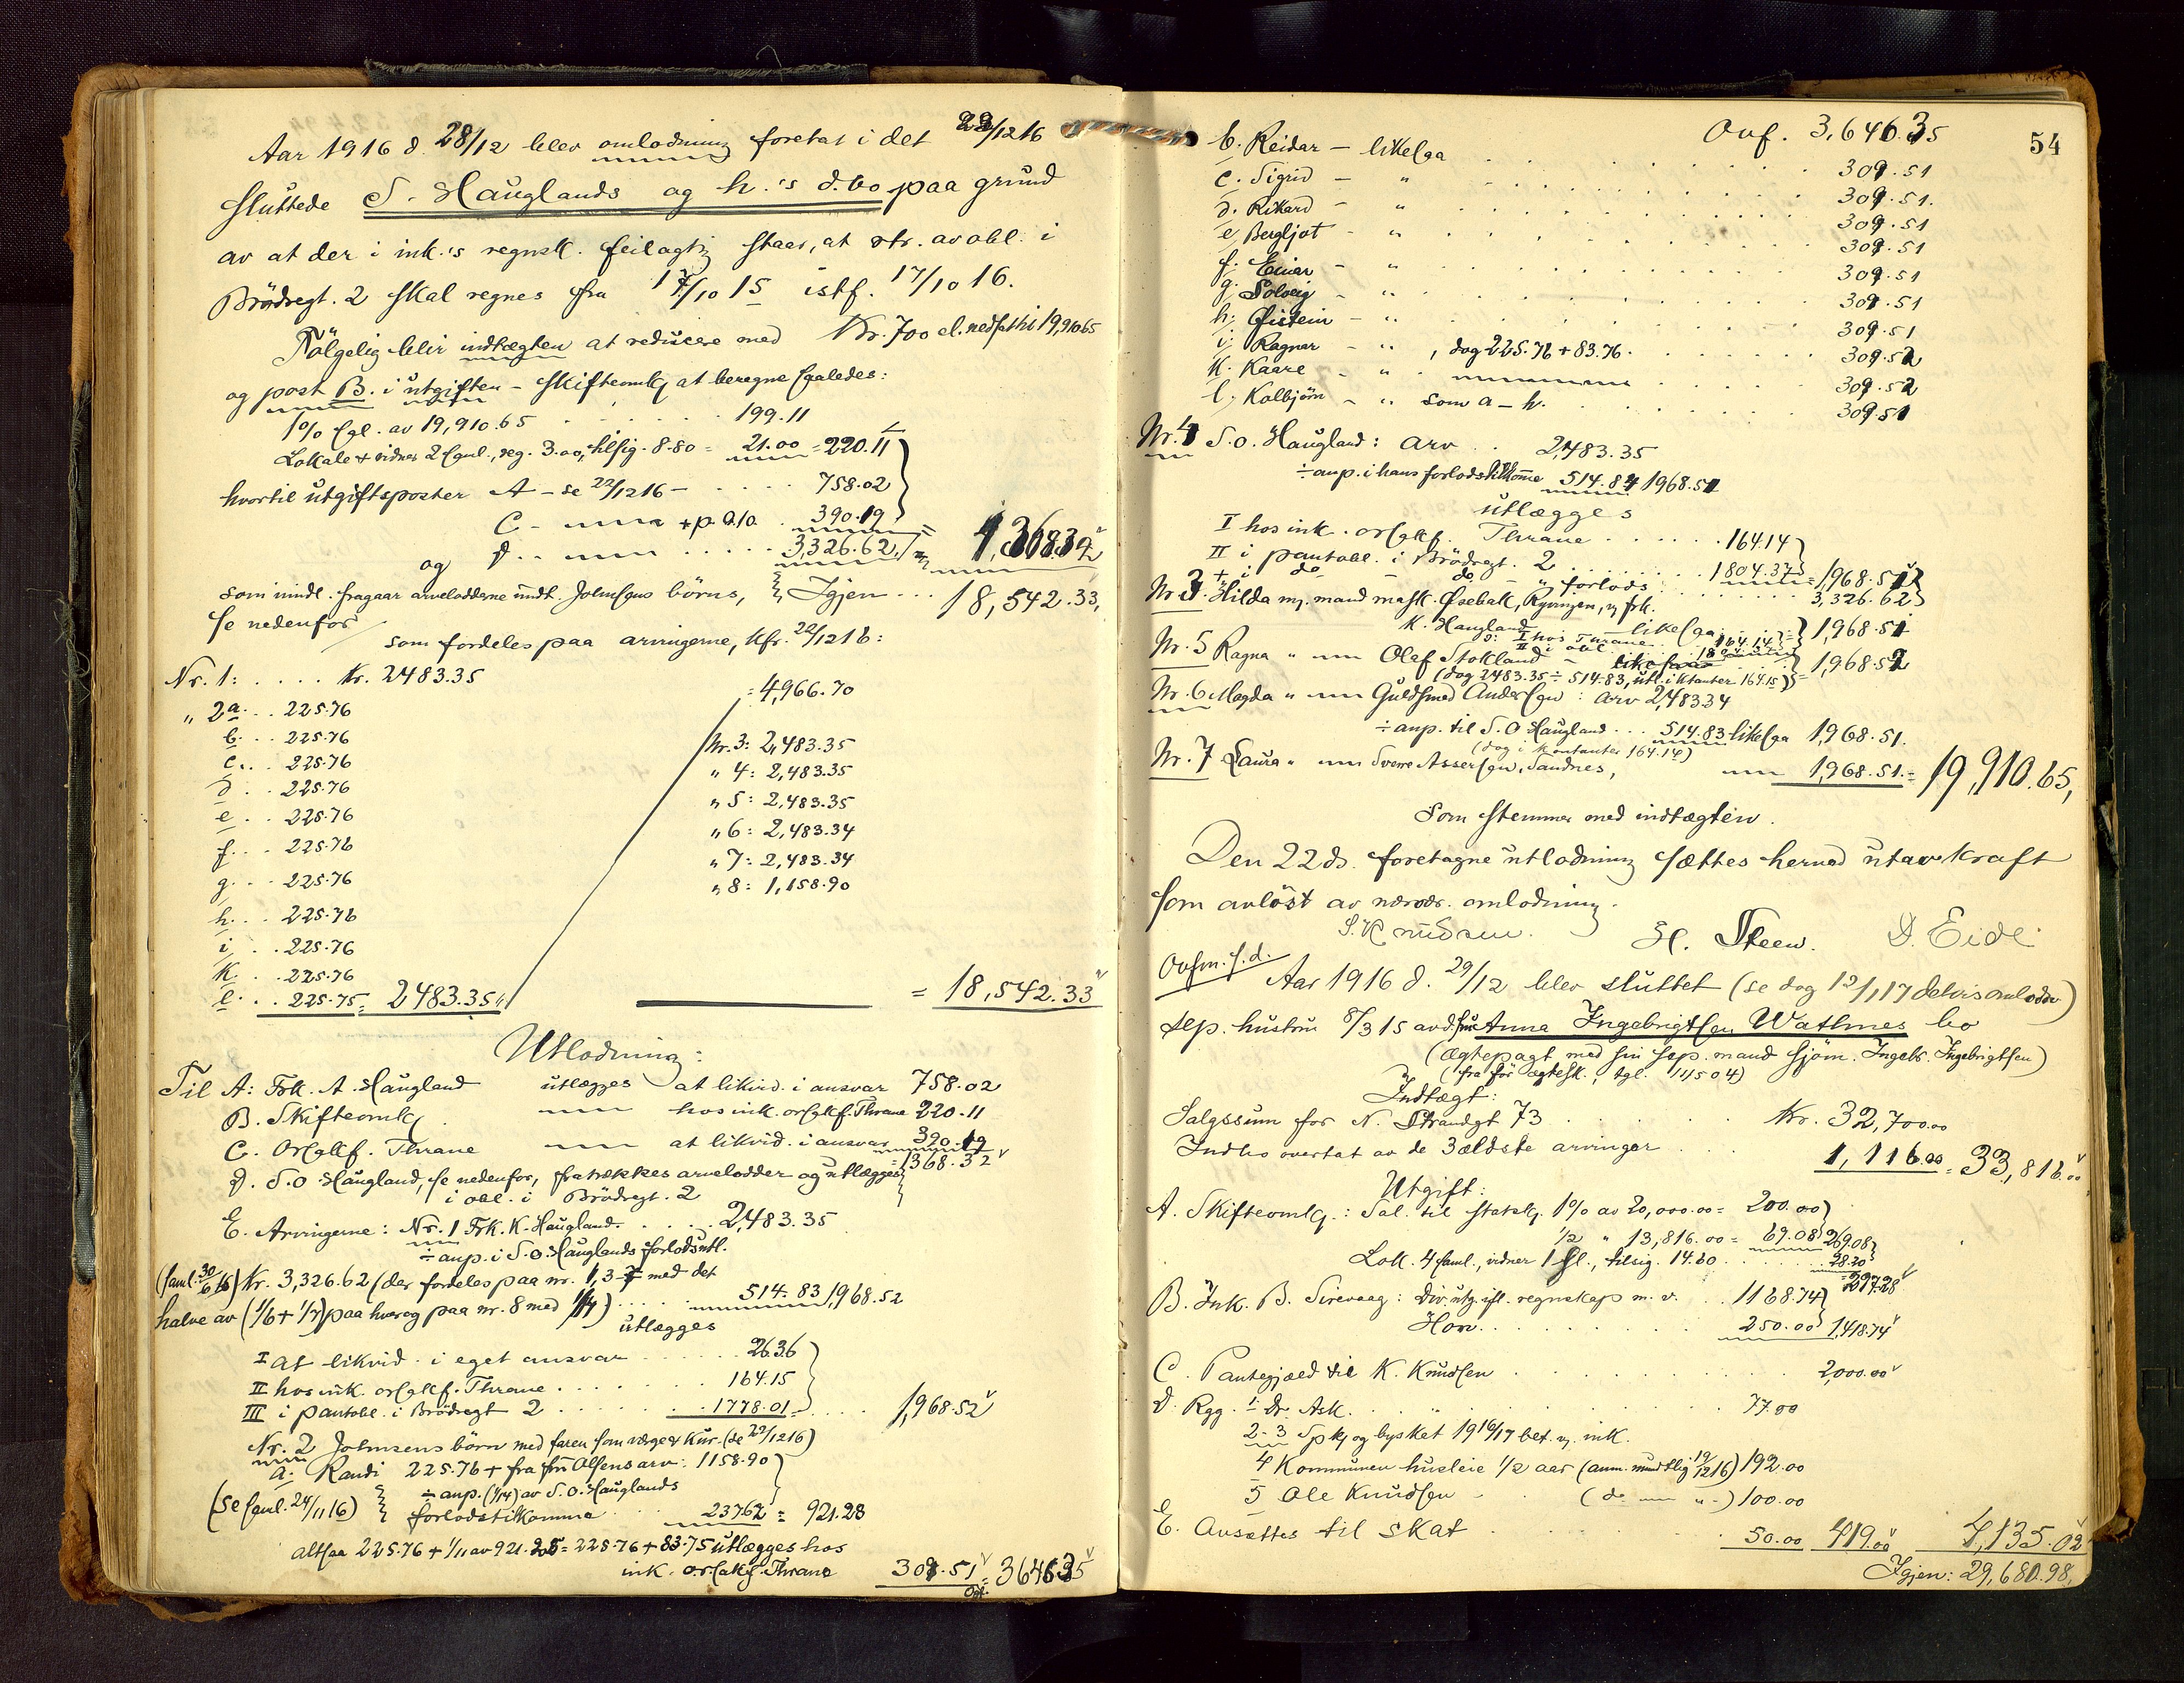 Aar 1916 d. 28/12 blev omlodning foretat i det 22/12 16
sluttede S. Hauglands og h.'s d.bo paa grund
av at der i ink.'s regnsk. feilagtig staar, at rtr. av obl. i
Brödregt. 2 skal regnes fra 17/10 15 istf. 17/10 16.
Fölgelig blir indtægten at reducere med Kr. 700 el. nedsat til 19,910.65
og post B. i utgiften – Skifteomk. at beregne saaledes:
1% sgl. av 19,910.65 . . . 199.11
Lokale + vidner 2 saml., seg. 3.00, tilsig. 8.80 = 21.00 = 220.11
hvortil utgiftsposter A – se 22/12 16 – . . . 758.02
C – — + p. a. 10 . 390.19
= 1,368.32
og D – — . . . 3,326.62
som imidl. fragaar arvelodderne undt. Johnsens börns, Igjen . . . 18,542.33,
se nedenfor
som fordeles paa arvingerne, kfr. 22/12 16:
Nr. 1: . . . . Kr. 2483.35
= 4,966.70
" 2 a. . . 225.76
b. . . 225.76
Nr. 3: 2,483.35
c. . . 225.76
" 4: 2,483.35
d . . 225.76
" 5: 2,483.35
e . . 225.76
" 6: 2,483.34
f. . . 225.76
" 7: 2,483.34
g. . . 225.76
" 8: 1,158.90
h. . . 225.76
i . . 225.76
k . . 225.76
l. . . 225.75 = 2483.35
= 18,542.33
Utlodning:
Til A: Frk. A. Haugland utlægges at likvid. i ansvar 758.02
B. Skifteomk. — hos ink. orsakf. Thrane 220.11
C. Orsakf. Thrane — at likvid. i ansvar 390.19
= 1368.32
D. S. O. Haugland, se nedenfor, fratrækkes arvelodder og utlægges
i obl. i Brödregt. 2
E. Arvingerne: Nr. 1 Frk. K. Haugland . . . . 2,483.35
÷ anp. i S. O. Hauglands forlodsutl.
(saml. 30/6 16) Kr. 3,326.62 (der fordeles paa nr. 1, 3-7 med det
halve av (1/6 + 1/7) paa hver og paa nr. 8 med 1/14) . . . 514.83 1,968.52
utlægges
I at likvid. i eget ansvar . . . 26.36
II hos ink. orsakf. Thrane . . . 164.15
III i pantobl. i Brödregt 2 . . . 1778.01 . . . 1,968.52
Nr. 2 Johnsens börn med faren som værge & kur. (se 22/12 16)
a. Randi 225.76 + fra fru Olsens arv: 1158.90
÷ anp. (1/14) av S. O. Hauglands
(se saml. 24/11 16) forlodstilkomme . 237.62 = 921.28
altsaa 225.76 + 1/11 av 921.28 = 225.76 + 83.75 utlægges hos
ink. orsakf. Thrane 309.51 = 3646.35
Ovf.
54
Ovf. 3,646.35
b. Reidar – likesaa . . . 309.51
c. Sigrid – " . . . 309.51.
d. Rikard – " . . . 309.51
e. Bergljot – " . . . 309.51
f. Einar – " . . . 309.51
g. Solveig – " . . . 309.51
h. Øistein – " . . . 309.51
i. Ragnar – " , dog 225.76 + 83.76 . . . 309.52
k. Kaare – " . — . . . 309.52
l. Kolbjörn – " som a – h. . . . 309.51
Nr. 4 S. O. Haugland: arv . . 2,483.35
÷ anp. i hans forlodstilkomme 514.84 1968.51
utlægges
I hos ink. orsakf. Thrane . . . 164.14
II i pantobl. i Brödregt. 2 . . . 1804.37 = 1,968.51
+ i do – do – " forlods . . . 3,326.62
Nr. 3. Hilda m. mand mask. Øsebak, Ryvingen, v. frk.
K. Haugland likesaa: 1,968.51
d: I hos Thrane 164.14
II i obl. 1804.37
Nr. 5 Ragna " — Olaf Stokland – likesaa 1,968.52
(dog 2483.35 ÷ 514.83, utl. i Ktanter 164.15)
Nr. 6 Magda " — Guldsmed Andersen: arv 2,483.34
÷ anp. til S. O. Haugland . . . 514.83 likesaa 1,968.51.
(dog i kontanter 164.14)
Nr. 7 Laura " — Sverre Assersen, Sandnes, — 1,968.51. = 19,910.65,
Som stemmer med indtægten.
Den 22 ds. foretagne utlodning sættes herved ut av kraft
som avlöst av nærvær. omlodning.
S. Knudsen. H. Steen. D. Eide
Ovfm. s. d.
Aar 1916 d. 29/12 blev sluttet (se dog 12/1 17 delvis omlodn)
sep. hustru 8/3 15 avd. fru Anna Ingebrigtsen Wathnes bo
(Ægtepagt med sin sep. mand sjöm. Ingebr. Ingebrigtsen)
(fra för ægtesk., tgl. 11/5 04)
Indtægt:
Salgssum for N. Strandgt 73 . . . Kr. 32,700.00
Indbo overtat av de 3 ældste arvinger . . . 1,116.00 = 33,816.00
Utgift:
A. Skifteomk.: Sal. til statsk. 1% av 20,000.00 = 200.00
1/2 " 13,816.00 = 69.08 269.08
Lok. 4 saml., vidner 1 sl., tilsig. 14.60 . . . 28.20
= 297.28
B. Ink. B. Sirevaag: Div. utg. ifl. regnskap m. v. . . 1168.74
Hon. . . . 250.00 1,418.74
C. Pantegjæld til K. Knudsen . . . 2,000.00
D. Rgg. 1. Dr. Ask. . . . 77.00
2-3 Spk. og bysket 1916/17 bet. v. ink.
4 Kommunen husleie 1/2 aar (anm. mundtlig 19/12 16) 192.00
5 Ole Knudsen . (do — " -) 100.00
E. Avsættes til skat . . . 50.00 419.00 4,135.02
Igjen: 29,680.98,